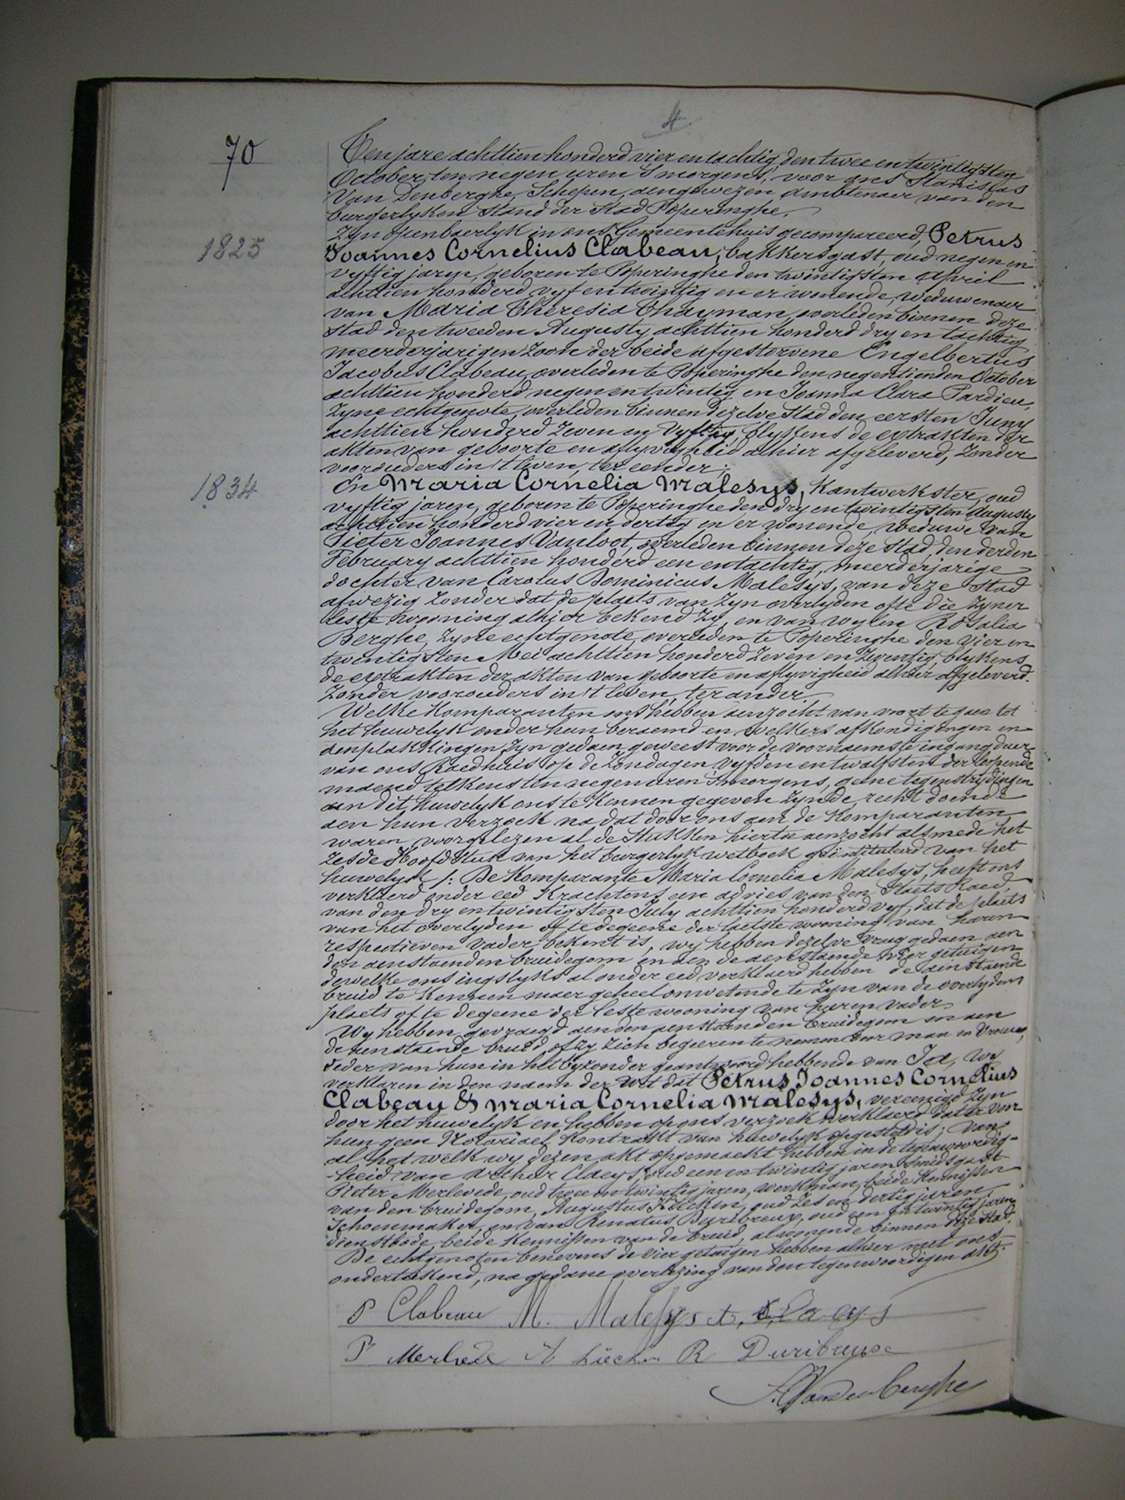 4
70
Ten jare achttien honderd vier en tachtig, den twee en twintigsten
October, ten negen uren 's morgens, voor ons Stanislas
Van Denberghe, Schepen, aengewezen ambtenaer van den
burgerlyken Stand der Stad Poperinghe,
Zyn openbaerlyk in ons Gemeentehuis gecompareerd, Petrus
1825
Joannes Cornelius Clabeau, bakkersgast, oud negen en
vyftig jaren, geboren te Poperinghe den twintigsten April
achttien honderd vyf en twintig en er wonende, weduwenaer
van Maria Theresia Thayman, overleden binnen deze
stad den tweeden Augusty achttien honderd dry en tachtig
meerderjarigen Zoon der beide afgestorvene Engelbertus
Jacobus Clabeau, overleden te Poperinghe den negentienden October
achttien honderd negen en twintig en Joanna Clara Pardieu,
zyne echtgenote, overleden binnen dezelve stad den eersten Juny
achttien honderd zeven en vyftig, blykens de extrakten der
akten van geboorte en aflyvigheid alhier afgeleverd, zonder
voorouders in 't leven, ter eender;
1834
En Maria Cornelia Malesys, Kantwerkster, oud
vyftig jaren, geboren te Poperinghe den dry en twintigsten Augusty
achttien honderd vier en dertig en er wonende, weduwe van
Pieter Joannes Vanloot, overleden binnen deze Stad, den derden
February achttien honderd een en tachtig, meerderjarige
dochter van Carolus Dominicus Malesys, van deze Stad
afwezig zonder dat de plaets van zyn overlyden ofte die zyner
leste wooning alhier bekend zy, en van wylen Rosalia
Berghe, zyne echtgenote, overleden te Poperinghe den vier en
twintigsten Mei achttien honderd zeven en zeventig, blykens
de extrakten der akten van geboorte en aflyvigheid alhier afgeleverd.
zonder voorouders in 't leven, ter ander,
Welke Komparanten ons hebben aenzocht van voort te gaen tot
het huwelyk onder hun beraemd en welkers afkondigingen en
aenplakkingen zyn gedaen geweest voor de voornaemste ingangdeur
van ons Raedhuis op de Zondagen vyfden en twalfsten der loopende
maend telkens ten negen uren 's morgens, geene tegenstrydingen
aen dit huwelyk ons te Kennen gegeven zynde, recht doende
aen hun verzoek na dat door ons aen de Komparanten
waren voorgelezen al de Stukken hiertoe aenzocht alsmede het
zesde Hoofdstuk van het burgerlyk wetboek geintituleerd van het
huwelyk /: De Komparante Maria Cornelia Malesys, heeft ons
verklaerd onder eed Krachtens een advies van den Staets Raed
van den dry en twintigsten July achttien honderd vyf, dat de plaets
van het overlyden ofte degeene der laetste wooning van haren
respectieven vader bekent is, wy hebben dezelve vraeg gedaen aen
den aenstaenden bruidegom en aen de aenstaende vier getuigen
dewelke ons insgelyks al onder eed verklaerd hebben de aenstaende
bruid te Kennen maer geheel onwetende te zyn van de overlydens
plaets ofte degene der leste wooning van haren vader.
Wy hebben gevraegd aen den aenstaenden bruidegom en aen
de aenstaende bruid of zy zich begeeren te nemen voor man en vrouw,
ieder van hun in het byzonder geantwoord hebbende van Ja, wy
verklaren in den naem der wet dat Petrus Joannes Cornelius
Clabeau & Maria Cornelia Malesys, vereenigd zyn
door het huwelyk en hebben op ons verzoek verklaerd dat er van
hun geen Notariael Kontrakt van huwelyk opgesteld is; Van
al het welk wy dezen akt opgemaekt hebben in de tegenwoordig-
heid van Arthur Claeys, oud een en twintig jaren, smidsgast
Pieter Merlevede, oud en twintig jaren, werkman, beide Kennissen
van den bruidegom, Augustus oud zes en dertig jaren,
Schoenmaker, en van Renatus oud een en twintig jaren
dienstbode beide Kennissen van de bruid, al wonende binnen deze Stad.
De echtgenoten benevens de vier getuigen hebben alhier met ons
onderteekend, na gedane overlezing van den tegenwoordigen akt.
P Clabeau M. Malesys A. Claeys
P Merlevede A R
S. Vandenberghe